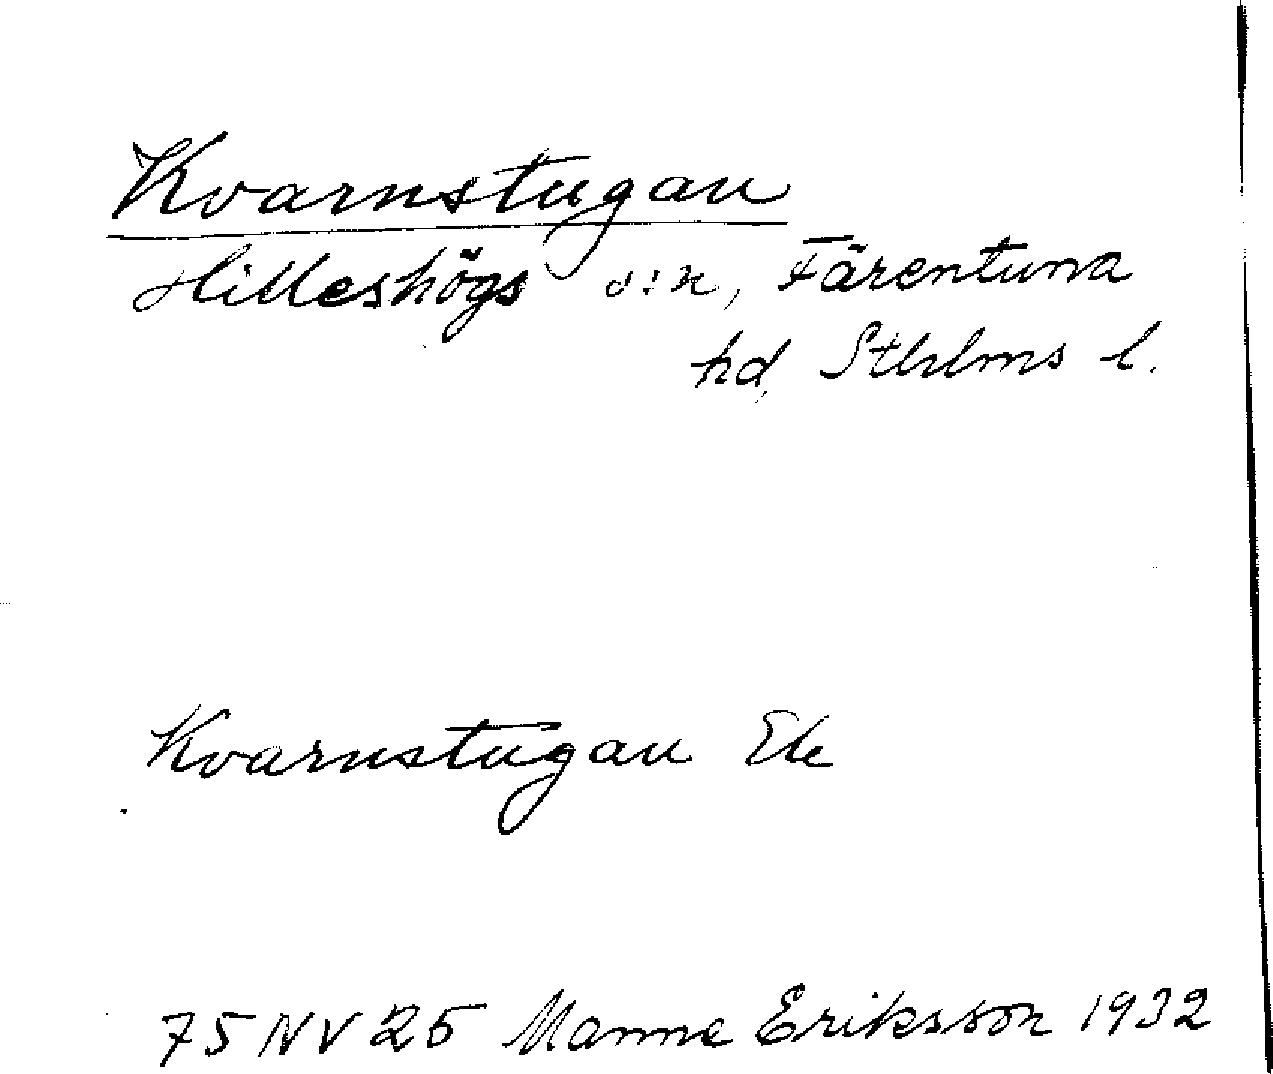 Kvarnstugan
Hilleshögs s:n, Färentuna
hd, Sthlms l.
Kvarnstugan Ek
75 NV 25 Manne Eriksson 1932